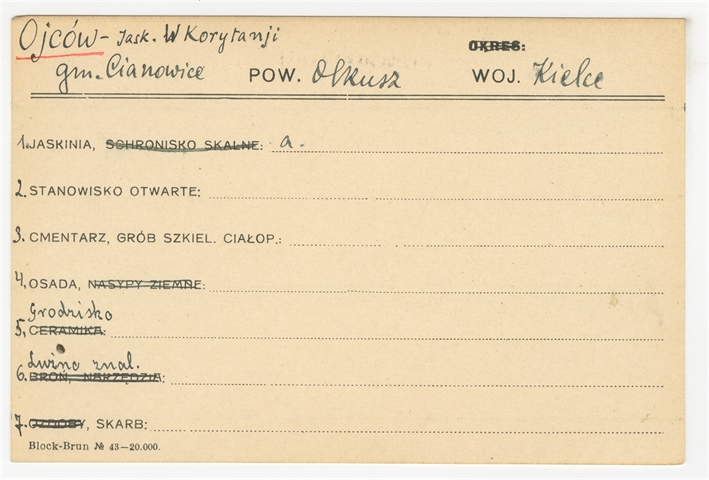 Ojców - Jask. W Korytanji
OKRES:
gm. Cianowice POW. Olkusz WOJ. Kielce
1. JASKINIA, SCHRONISKO SKALNE: a.
2. STANOWISKO OTWARTE:
3. CMENTARZ, GRÓB SZKIEL. CIAŁOP.:
4. OSADA, NASYPY ZIEMNE:
Grodzisko
5, CERAMIKA:
Luźno znal.
6. BROŃ, NARZĘDZIA:
7. OZDOBY, SKARB:
Block-Brun № 43—20.000.